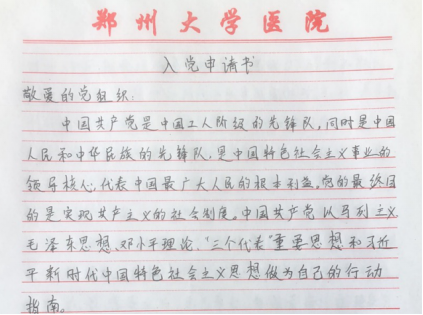 郑州大学医院
入党申请书
敬爱的党组织:
中国共产党是中国工人阶级的先锋队,同时是中国
人民和中华民族的先锋队,是中国特色社会主义事业的
领导核心,代表中国最广大人民的根本利益。党的最终目
的是实现共产主义的社会制度。中国共产党以马列主义
毛泽东思想、邓小平理论、“三个代表”重要思想和习近
平新时代中国特色社会主义思想做为自己的行动
指南。